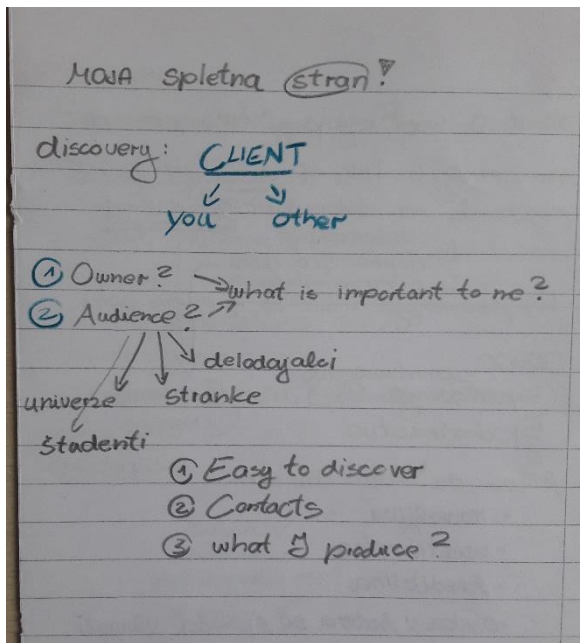 MOJA spletna stran!
discovery: CLIENT
you other
① Owner?
what is important to me?
② Audience?
delodajalci
univerze stranke
študenti
① Easy to discover
② Contacts
③ what I produce?